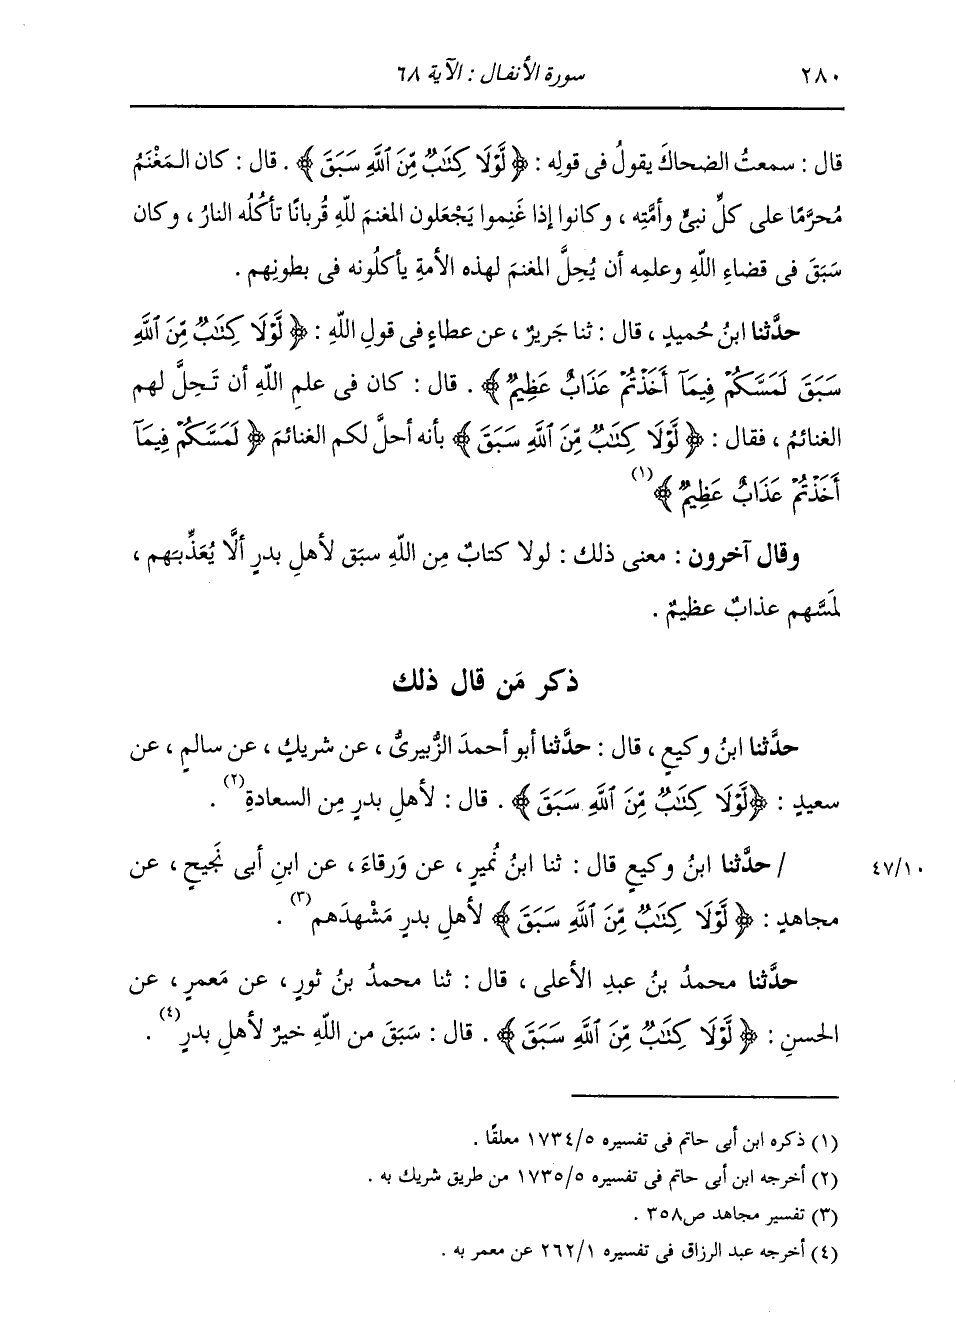 ٢٨٠
سورة الأنفال : الآية ٦٨
قال : سمعتُ الضحاكَ يقولُ فى قولِه : ﴿ لَّوْلَا كِتَٰبٌ مِّنَ ٱللَّهِ سَبَقَ ﴾ . قال : كان المَغْنَمُ
مُحرَّمًا على كلِّ نبىٍّ وأمَّتِه ، وكانوا إذا غَنِموا يَجْعَلون المغنمَ للّهِ قُربانًا تأكُلُه النارُ ، وكان
سَبَقَ فى قضاءِ اللّهِ وعلمِه أن يُحِلَّ المغنمَ لهذه الأمةِ يأكلونه فى بطونِهم .
حدَّثنا ابنُ حُميدٍ ، قال : ثنا جَريرٌ ، عن عطاءٍ فى قولِ اللّهِ : ﴿ لَّوْلَا كِتَٰبٌ مِّنَ ٱللَّهِ
سَبَقَ لَمَسَّكُمْ فِيمَآ أَخَذْتُمْ عَذَابٌ عَظِيمٌ ﴾ . قال : كان فى علمِ اللّهِ أن تَحِلَّ لهم
الغنائمُ ، فقال : ﴿ لَّوْلَا كِتَٰبٌ مِّنَ ٱللَّهِ سَبَقَ ﴾ بأنه أحلَّ لكم الغنائمَ ﴿ لَمَسَّكُمْ فِيمَآ
أَخَذْتُمْ عَذَابٌ عَظِيمٌ ﴾(١)
وقال آخرون : معنى ذلك : لولا كتابٌ مِن اللّهِ سبَق لأهلِ بدرٍ ألَّا يُعَذِّبَهم ،
لمَسَّهم عذابٌ عظيمٌ .
ذكر مَن قال ذلك
حدَّثنا ابنُ وكيعٍ ، قال : حدَّثنا أبو أحمدَ الزُّبيرىُّ ، عن شريكٍ ، عن سالمٍ ، عن
سعيدٍ : ﴿لَّوْلَا كِتَٰبٌ مِّنَ ٱللَّهِ سَبَقَ ﴾ . قال : لأهلِ بدرٍ مِن السعادةِ(٢) .
/ حدَّثنا ابنُ وكيعٍ قال : ثنا ابنُ نُميرٍ ، عن وَرقاءَ ، عن ابنِ أبى نَجيحٍ ، عن
٤٧/١٠
مجاهدٍ : ﴿ لَّوْلَا كِتَٰبٌ مِّنَ ٱللَّهِ سَبَقَ ﴾ لأهلِ بدرٍ مَشْهدَهم(٣) .
حدَّثنا محمدُ بنُ عبدِ الأعلى ، قال : ثنا محمدُ بنُ ثورٍ ، عن مَعمرٍ ، عن
الحسنِ : ﴿ لَّوْلَا كِتَٰبٌ مِّنَ ٱللَّهِ سَبَقَ ﴾ . قال : سَبَقَ من اللّهِ خيرٌ لأهلِ بدرٍ(٤) .
(١) ذكره ابن أبى حاتم فى تفسيره ١٧٣٤/٥ معلقًا .
(٢) أخرجه ابن أبى حاتم فى تفسيره ١٧٣٥/٥ من طريق شريك به .
(٣) تفسير مجاهد ص٣٥٨ .
(٤) أخرجه عبد الرزاق فى تفسيره ٢٦٢/١ عن معمر به .